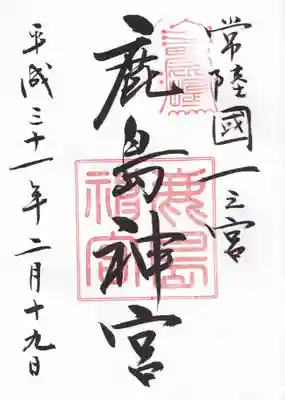 常陸國一之宮
鹿島神宮
平成三十一年二月十九日
鹿島神宮